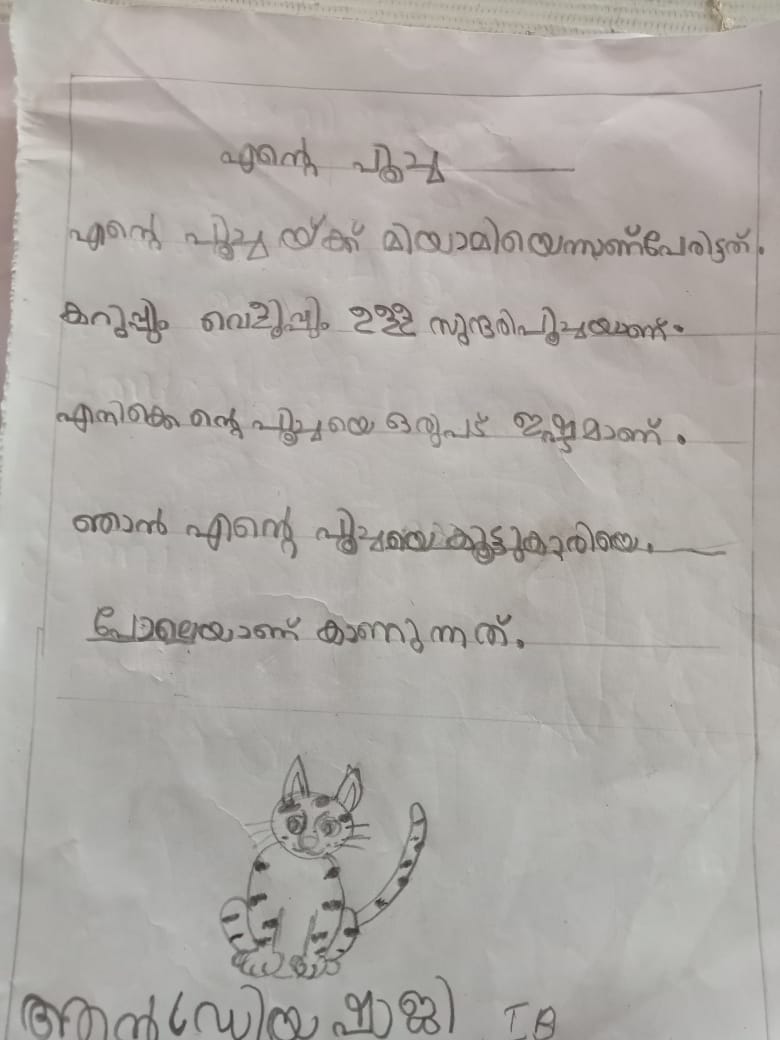 എന്റെ പൂച്ച
എന്റെ പൂച്ചയ്ക്ക് മിയാമിയെന്നാണ്പേരിട്ടത്.
കറുപ്പും വെളുപ്പും ഉള്ള സുന്ദരിപൂച്ചയാണ്.
എനിക്കെന്റെ പൂച്ചയെ ഒരുപട് ഇഷ്ടമാണ്.
ഞാൻ എന്റെ പൂച്ചയെകൂട്ടുകാരിയെ.
പോലെയാണ് കാണുന്നത്.
ആൻഡ്രിയ ഷാജി I B